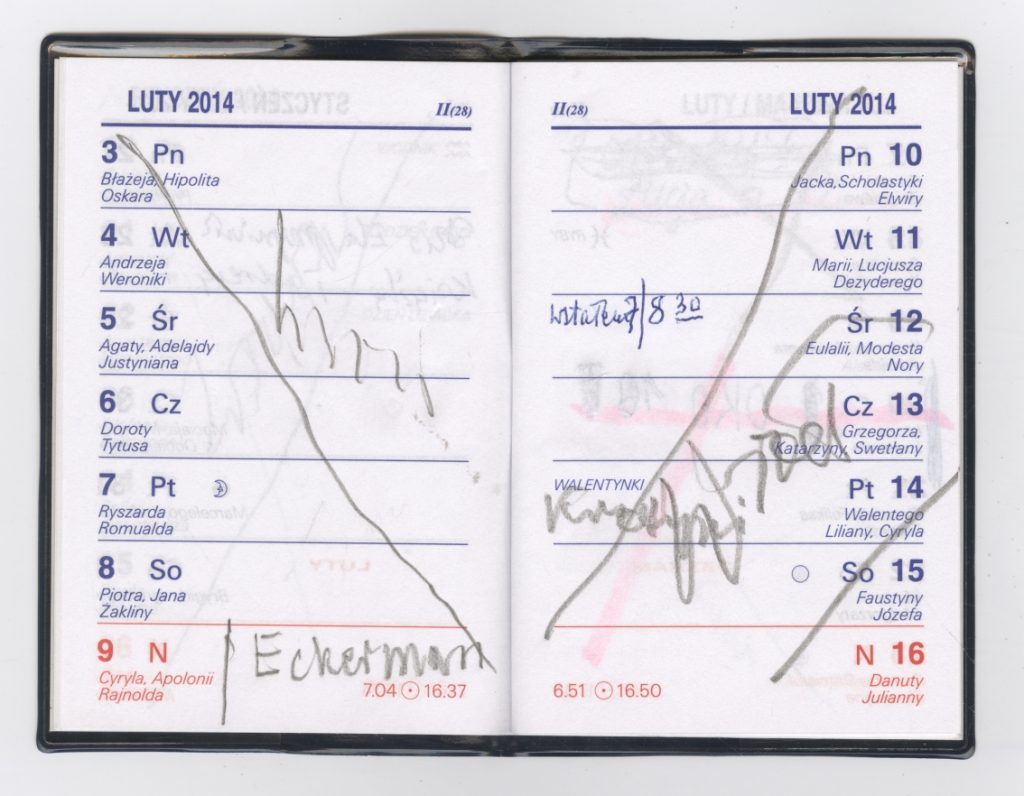 LUTY 2014
II(28)
3 Pn
Błażeja, Hipolita
Oskara
4 Wt
Andrzeja
Weroniki
5 Śr
Agaty, Adelajdy
Justyniana
6 Cz
Doroty
Tytusa
7 Pt
Ryszarda
Romualda
8 So
Piotra, Jana
Żakliny
9 N
Cyryla, Apolonii
Rajnolda
Eckerman
7.04 16.37
II(28)
LUTY 2014
Pn 10
Jacka,Scholastyki
Elwiry
Wt 11
Marii, Lucjusza
Dezyderego
8 30
Śr 12
Eulalii, Modesta
Nory
Cz 13
Grzegorza,
Katarzyny, Swetłany
WALENTYNKI
Pt 14
Walentego
Liliany, Cyryla
So 15
Faustyny
Józefa
N 16
Danuty
Julianny
6.51 16.50